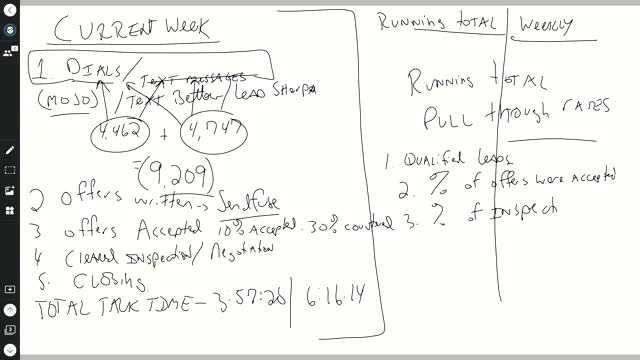 CURRENT WEEK
1. DIALS/ TEXT MESSAGES
(MOJO) / TEXT Better / LEAD SHERPA
4,462 + 4,747
=(9,209)
2 Offers written → Sendfuse
3 Offers Accepted 10% Accepted - 30% countered
4 Cleared INSPECTION/ Negotiation
5. CLOSING
TOTAL TALK TIME - 3:57:26 | 6:16:14
RUNNING TOTAL
WEEKLY
RUNNING TOTAL
PULL through RATES
1. QUALIFIED Leads
2. % of offers were Accepted
3. % of INSPECTI
2